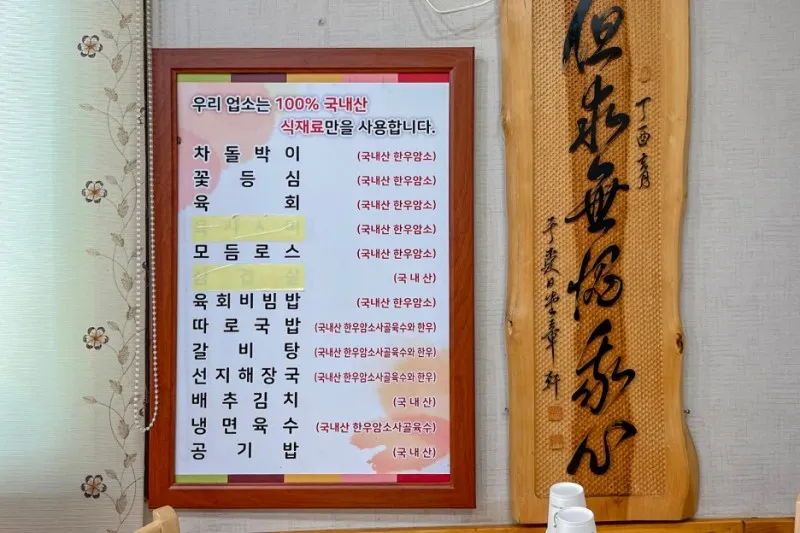 우리 업소는 100% 국내산
식재료만을 사용합니다.
차 돌 박 이 (국내산 한우암소)
꽃 등 심 (국내산 한우암소)
육 회 (국내산 한우암소)
(국내산 한우암소)
모 듬 로 스 (국내산 한우암소)
삼 겹 살 (국 내 산)
육 회 비 빔 밥 (국내산 한우암소)
따 로 국 밥 (국내산 한우암소사골육수와 한우)
갈 비 탕 (국내산 한우암소사골육수와 한우)
선 지 해 장 국 (국내산 한우암소사골육수와 한우)
배 추 김 치 (국 내 산)
냉 면 육 수 (국내산 한우암소사골육수)
공 기 밥 (국 내 산)
但求無愧我心
丁酉